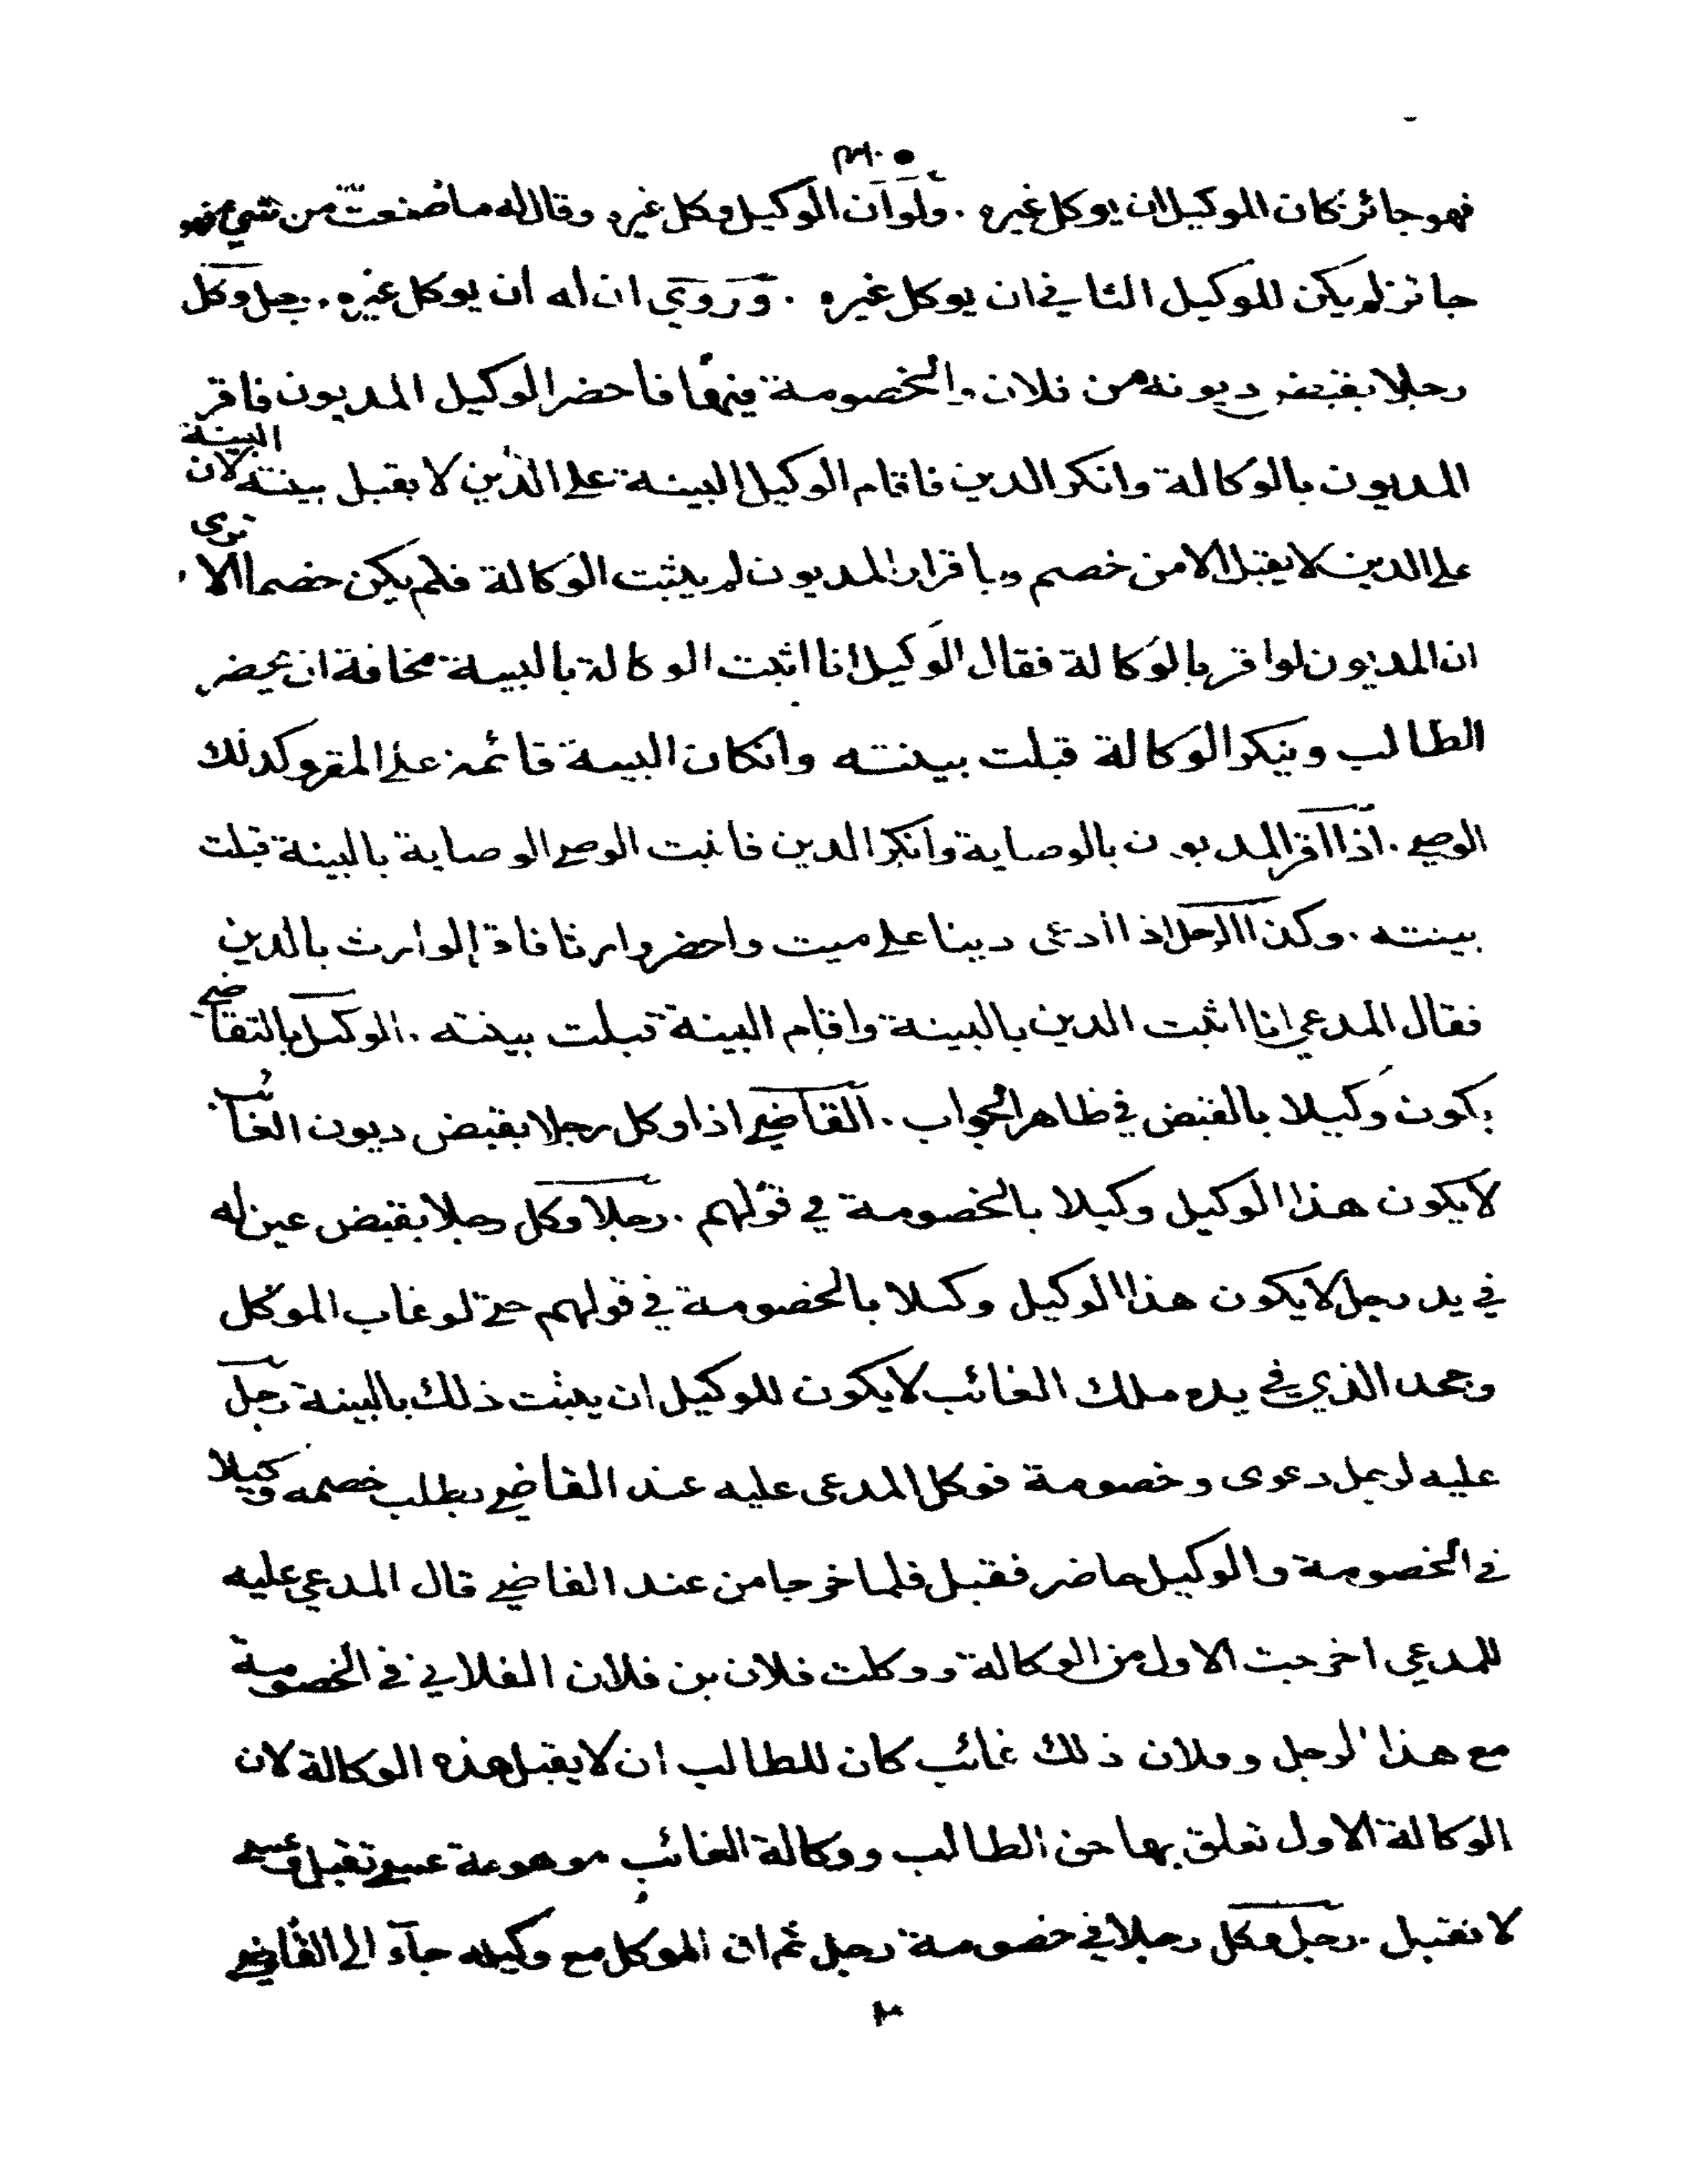 فهو جائز كان للوكيل ان يوكل غيره . ولو ان الوكيل وكل غيره وقال له ما صنعت من شيء فهو
جائز لم يكن للوكيل الثاني ان يوكل غيره . وروي ان له ان يوكل غيره . رجل وكل
رجلا بقبض ديونه من فلان والخصومة فيها فاحضر الوكيل المديون فاقر
المديون بالوكالة وانكر الدين فاقام الوكيل البينة على الدين لا يقبل بينته لان البينة
على الدين لا يقبل الا من خصم وباقرار المديون لم يثبت الوكالة فلم يكن خصما الا ترى
ان المديون لو اقر بالوكالة فقال الوكيل انا اثبت الوكالة بالبينة مخافة ان يحضر
الطالب وينكر الوكالة قبلت بينته وان كان البينة قائمة على المقر وكذلك
الوصي . اذا اقر المديون بالوصاية وانكر الدين فاثبت الوصي الوصاية بالبينة قبلت
بينته . وكذا الرجل اذا ادعى دينا على ميت واحضر وارثا فاقر الوارث بالدين
فقال المدعي انا اثبت الدين بالبينة واقام البينة قبلت بينته . الوكيل بالتقاضي
يكون وكيلا بالقبض في ظاهر الجواب . القاضي اذا وكل رجلا بقبض ديون الغائب
لا يكون هذا الوكيل وكيلا بالخصومة في قولهم . رجلا وكل رجلا بقبض عين له
في يد رجل لا يكون هذا الوكيل وكيلا بالخصومة في قولهم حتى لو غاب الموكل
وجحد الذي في يده ملك الغائب لا يكون للوكيل ان يثبت ذلك بالبينة رجل
عليه لرجل دعوى وخصومة فوكل المدعى عليه عند القاضي بطلب خصمه وكيلا
في الخصومة والوكيل حاضر فقبل فلما خرجا من عند القاضي قال المدعي عليه
للمدعي اخرجت الاول من الوكالة ووكلت فلان بن فلان الفلاني في الخصومة
مع هذا الرجل وفلان ذلك غائب كان للطالب ان لا يقبل هذه الوكالة لان
الوكالة الاول تعلق بها حق الطالب ووكالة الغائب موهومة عسى تقبل وعسى
لا تقبل . رجل وكل رجلا في خصومة رجل ثم ان الموكل مع وكيله جآء الى القاضي